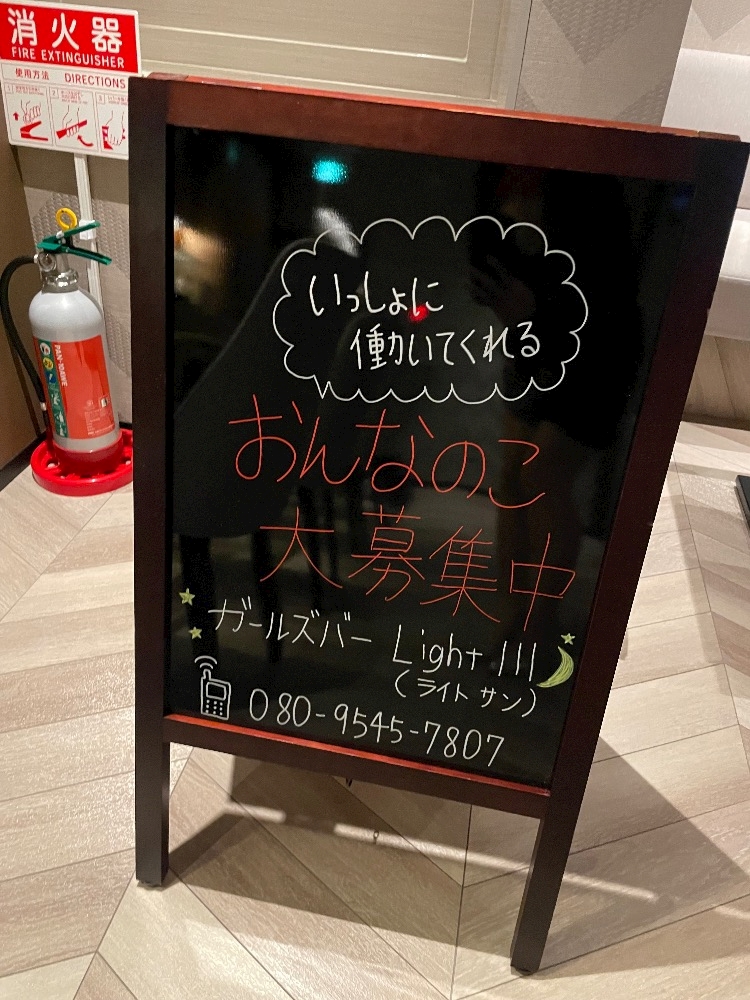 消火器
FIRE EXTINGUISHER
使用方法 DIRECTIONS
いっしょに
働いてくれる
おんなのこ
大募集中
ガールズバー Light III
(ライト サン)
080-9545-7807